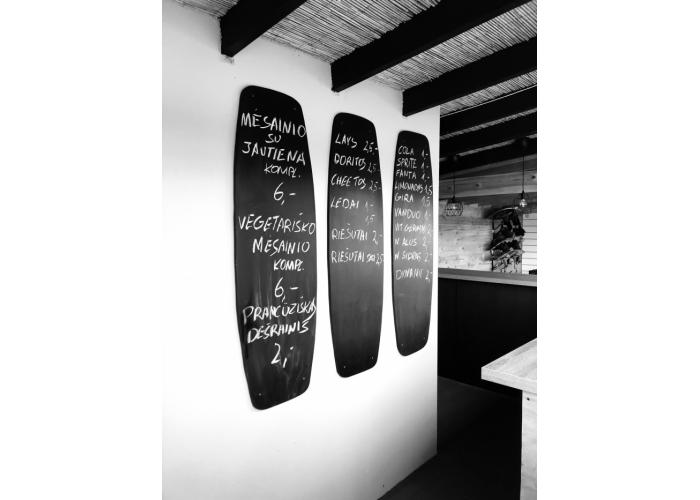 MĖSAINIO
SU
JAUTIENA
KOMPL.
6,-
VEGETARIŠKO
MĖSAINIO
KOMPL.
6,-
PRANCŪZIŠKAS
DEŠRAINIS
2,-
LAYS 2,5,-
DORITOS 2,5,-
CHEETOS 2,5,-
LEDAI 1,-
1,5
RIEŠUTAI 2,-
RIEŠUTAI 2,5
COLA 1,-
SPRITE 1,-
FANTA 1,-
LIMONADAS 1,5
GIRA 1,5
VANDUO 1,-
VIT. 2,-
N ALUS 2,-
N SIDRAS 2,-
DYNAMI 2,-